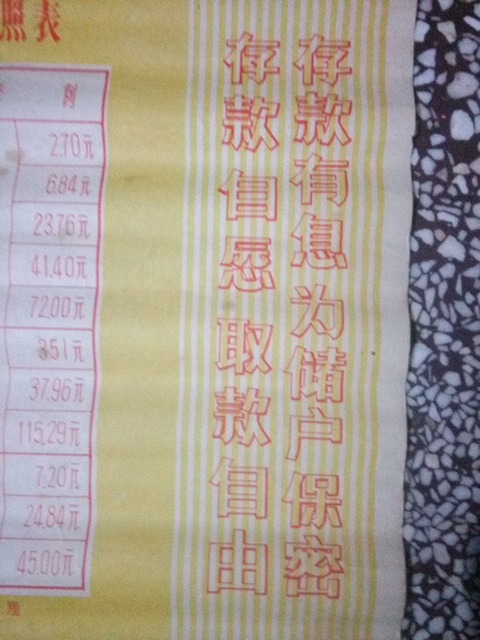 照表
利
2.70元
6.84元
23.76元
41.40元
72.00元
3.51元
37.96元
115.29元
7.20元
24.84元
45.00元
理
存款有息为储户保密
存款自愿取款自由